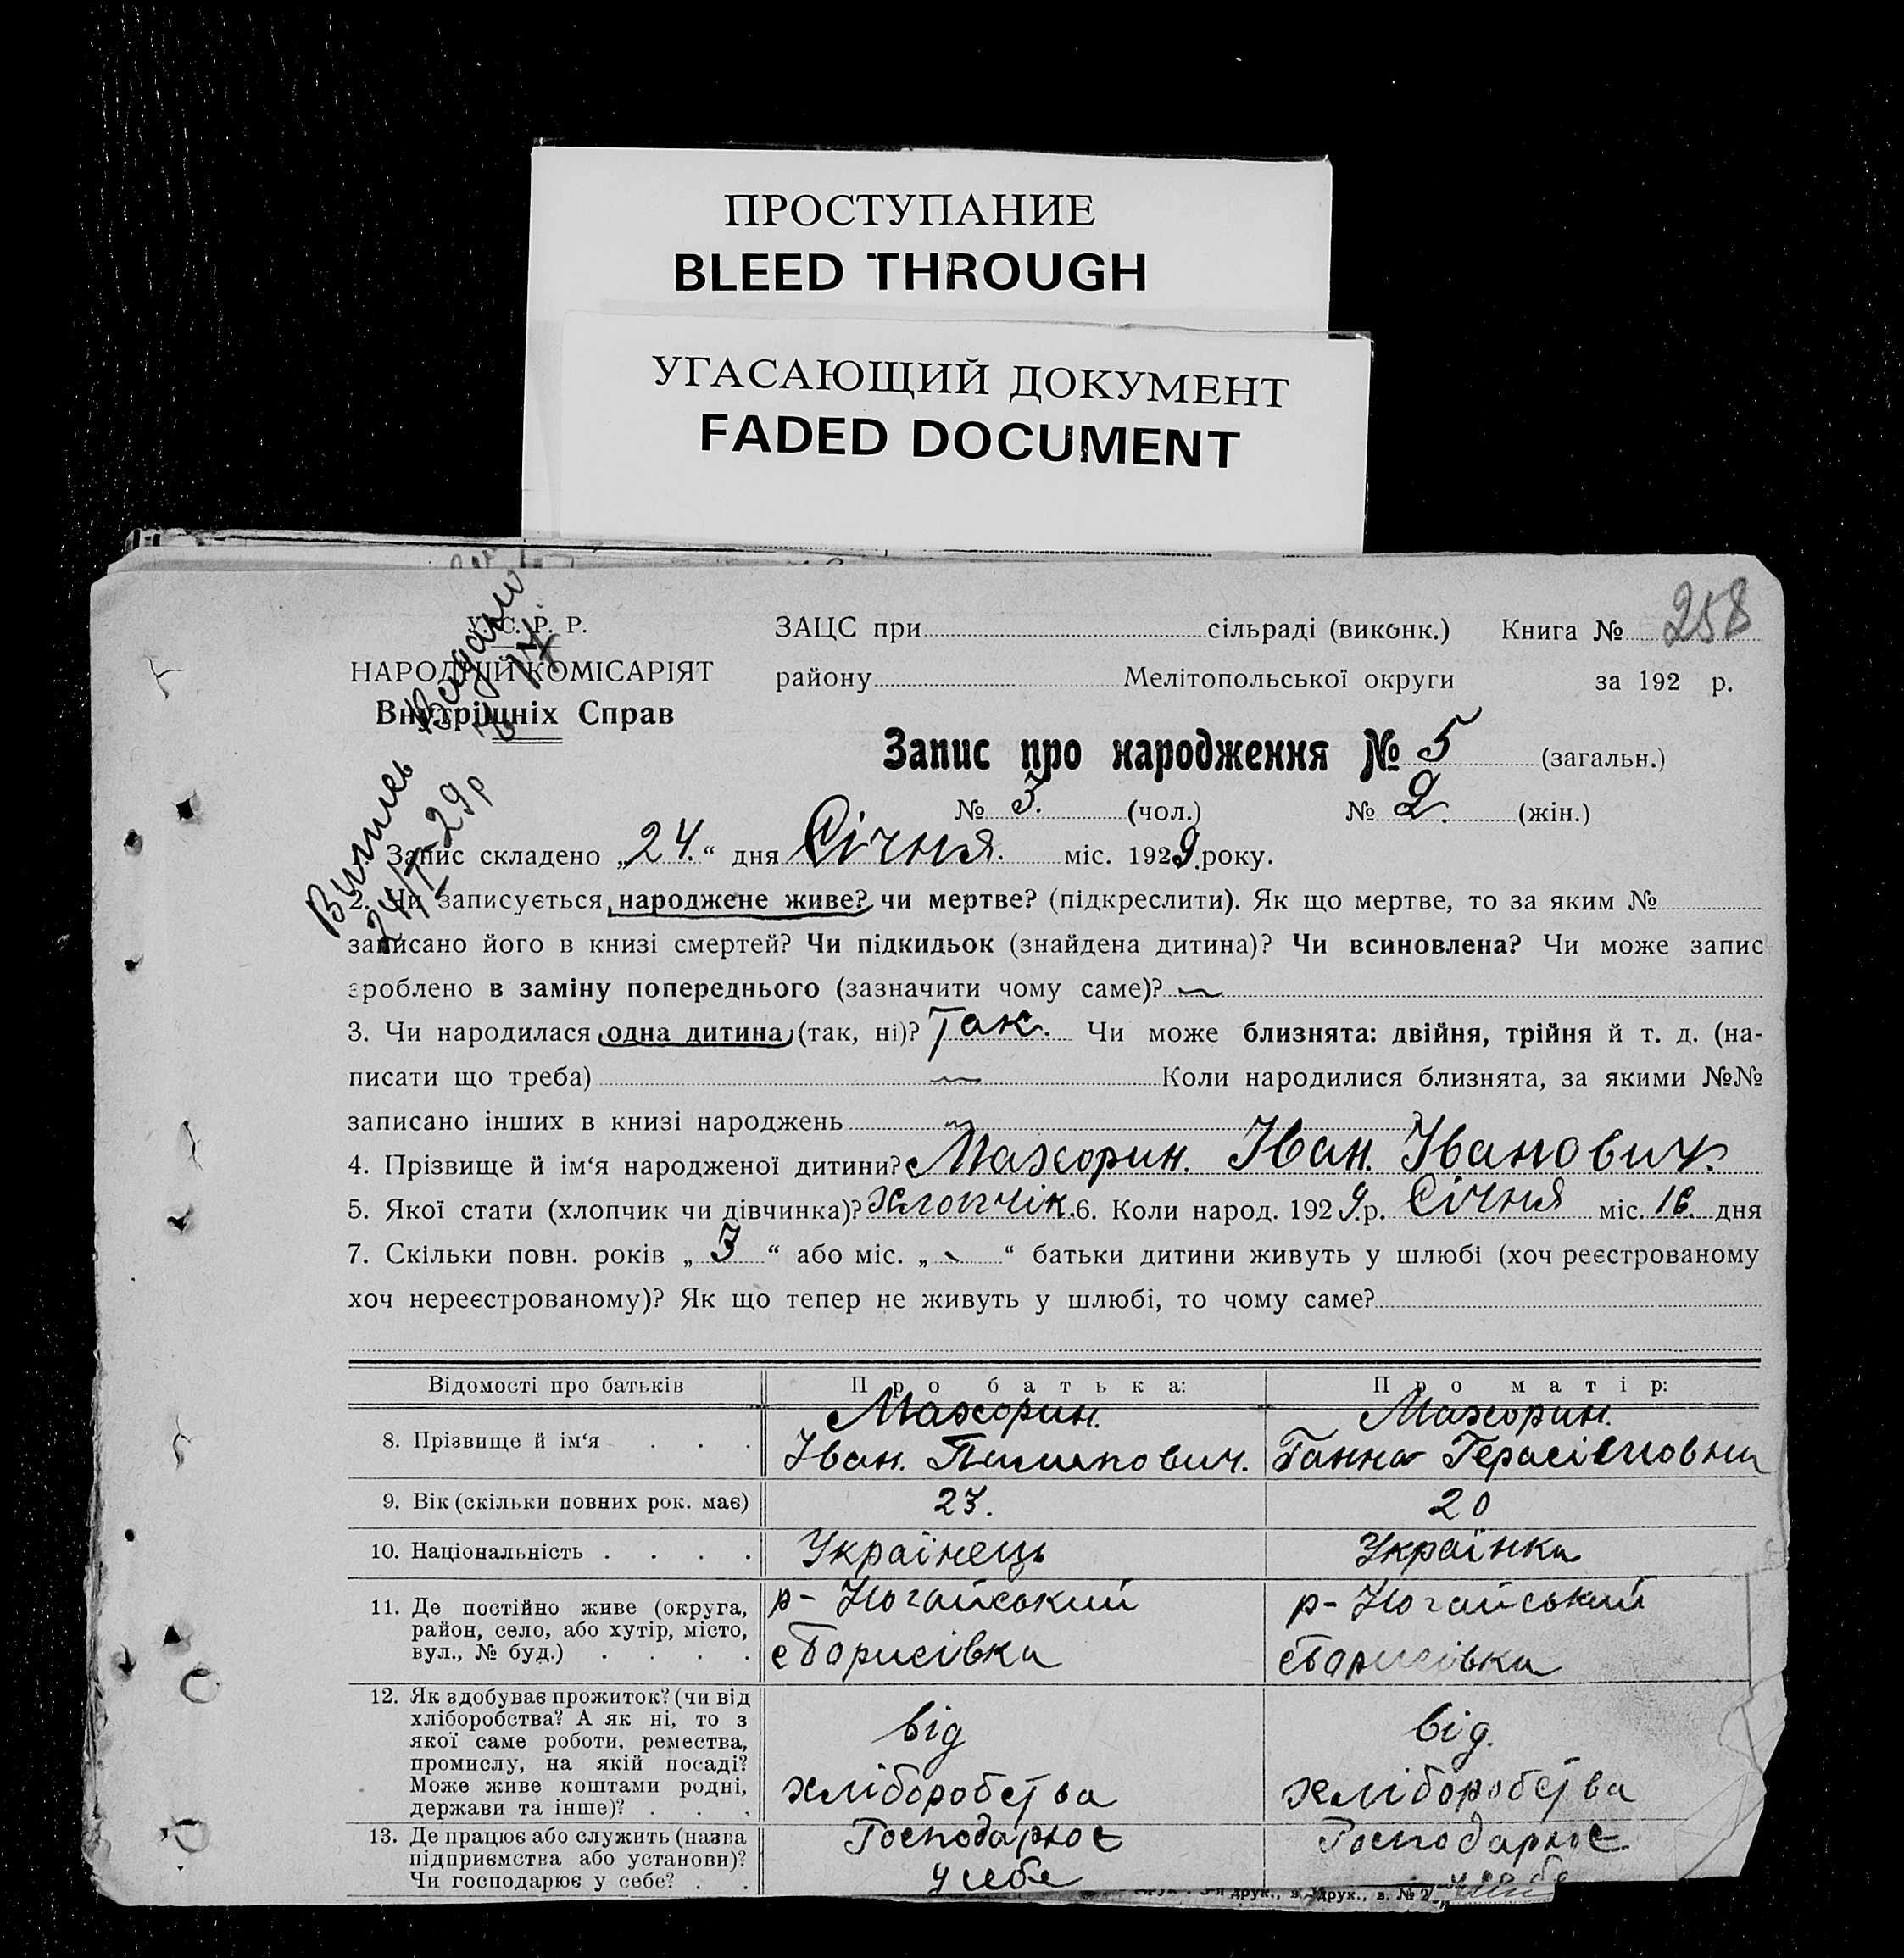 ПРОСТУПАНИЕ
BLEED THROUGH
УГАСАЮЩИЙ ДОКУМЕНТ
FADED DOCUMENT
258
У. С. Р. Р.
НАРОДНІЙ КОМІСАРІЯТ
Внутрішніх Справ
ЗАЦС при сільраді (виконк.) Книга №
району Мелітопольської округи за 192 р.
Запис про народження № 5 (загальн.)
№ 3. (чол.) № 2. (жін.)
24/I-29р
Запис складено „24.“ дня Січня. міс. 1929. року.
2. Чи записується народжене живе? чи мертве? (підкреслити). Як що мертве, то за яким №
записано його в книзі смертей? Чи підкидьок (знайдена дитина)? Чи всиновлена? Чи може запис
зроблено в заміну попереднього (зазначити чому саме)?
3. Чи народилася одна дитина (так, ні)? Так. Чи може близнята: двійня, трійня й т. д. (на-
писати що треба) Коли народилися близнята, за якими №№
записано інших в книзі народжень
4. Прізвище й ім‘я народженої дитини? Мажорин. Іван. Іванович.
5. Якої стати (хлопчик чи дівчинка)? Хлопчік. 6. Коли народ. 1929.р. Січня міс. 16. дня
7. Скільки повн. років „3“ або міс. „-“ батьки дитини живуть у шлюбі (хоч реєстрованому
хоч нереєстрованому)? Як що тепер не живуть у шлюбі, то чому саме?
Відомості про батьків Про батька: Про матір:
Мажорин. Мажорин.
8. Прізвище й ім‘я . . . Іван. Пилипович. Ганна Герасімовна
9. Вік (скільки повних рок. має) 23. 20
10. Національність . . . . Українець Українка
11. Де постійно живе (округа, р- Ногайський р- Ногайський
район, село, або хутір, місто,
вул., № буд.) . . . . с Борисівка с Борисівка
12. Як здобуває прожиток? (чи від
хліборобства? А як ні, то з
якої саме роботи, ремества, від від.
промислу, на якій посаді?
Може живе коштами родні, хліборобства хліборобства
держави та інше)? . . .
13. Де працює або служить (назва Господарює Господарює
підприємства або установи)?
Чи господарює у себе? . . у себе у себе